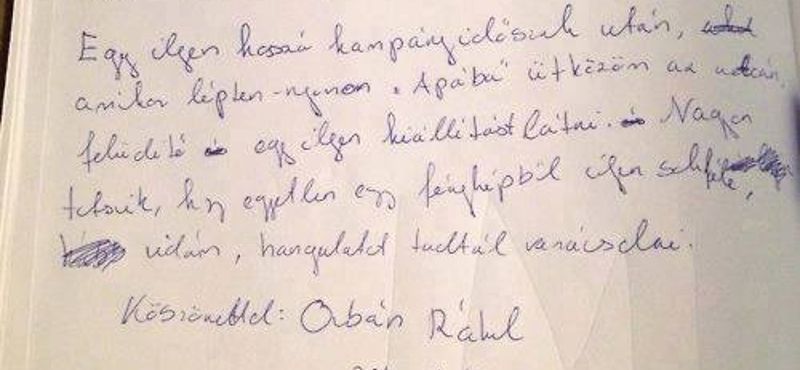 Egy ilyen hosszú kampányidőszak után,
amikor lépten-nyomon "Apába" ütközöm az utcán,
felüdítő egy ilyen kiállítást látni. Nagyon
tetszik, hgy egyetlen egy fényképből ilyen sokféle,
vidám, hangulatot tudtál varázsolni.
Köszönettel: Orbán Ráhel